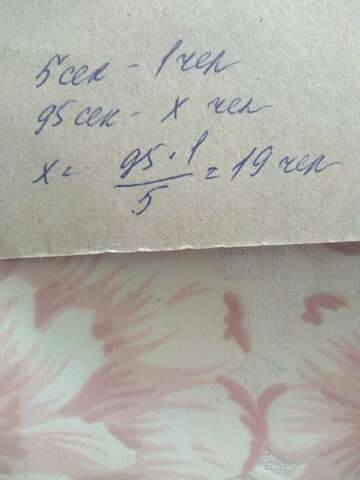 5 сек - 1 чел
95 сек - х чел
х = 95 · 1 / 5 = 19 чел